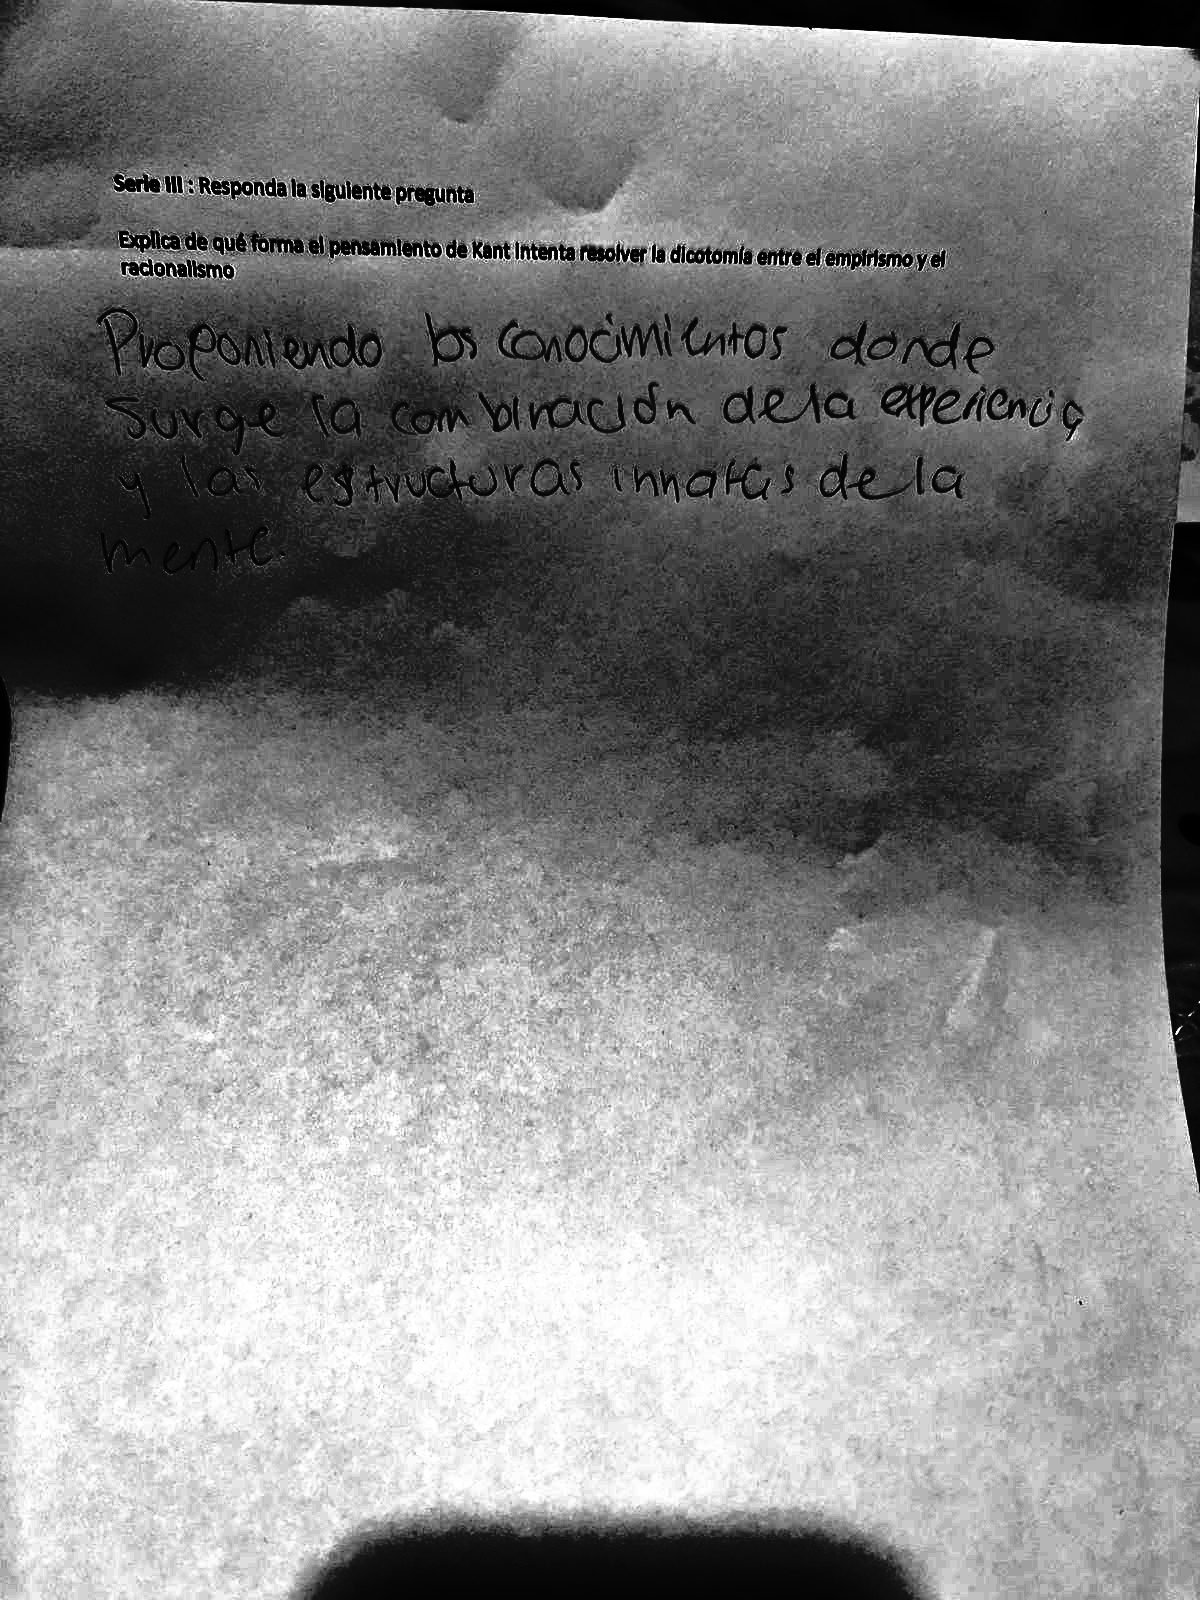 Serie III : Responda la siguiente pregunta
Explica de qué forma el pensamiento de Kant Intenta resolver la dicotomía entre el empirismo y el
racionalismo
Proponiendo los conocimientos donde
surge la combinación de la experiencia
y las estructuras innatas de la
mente.